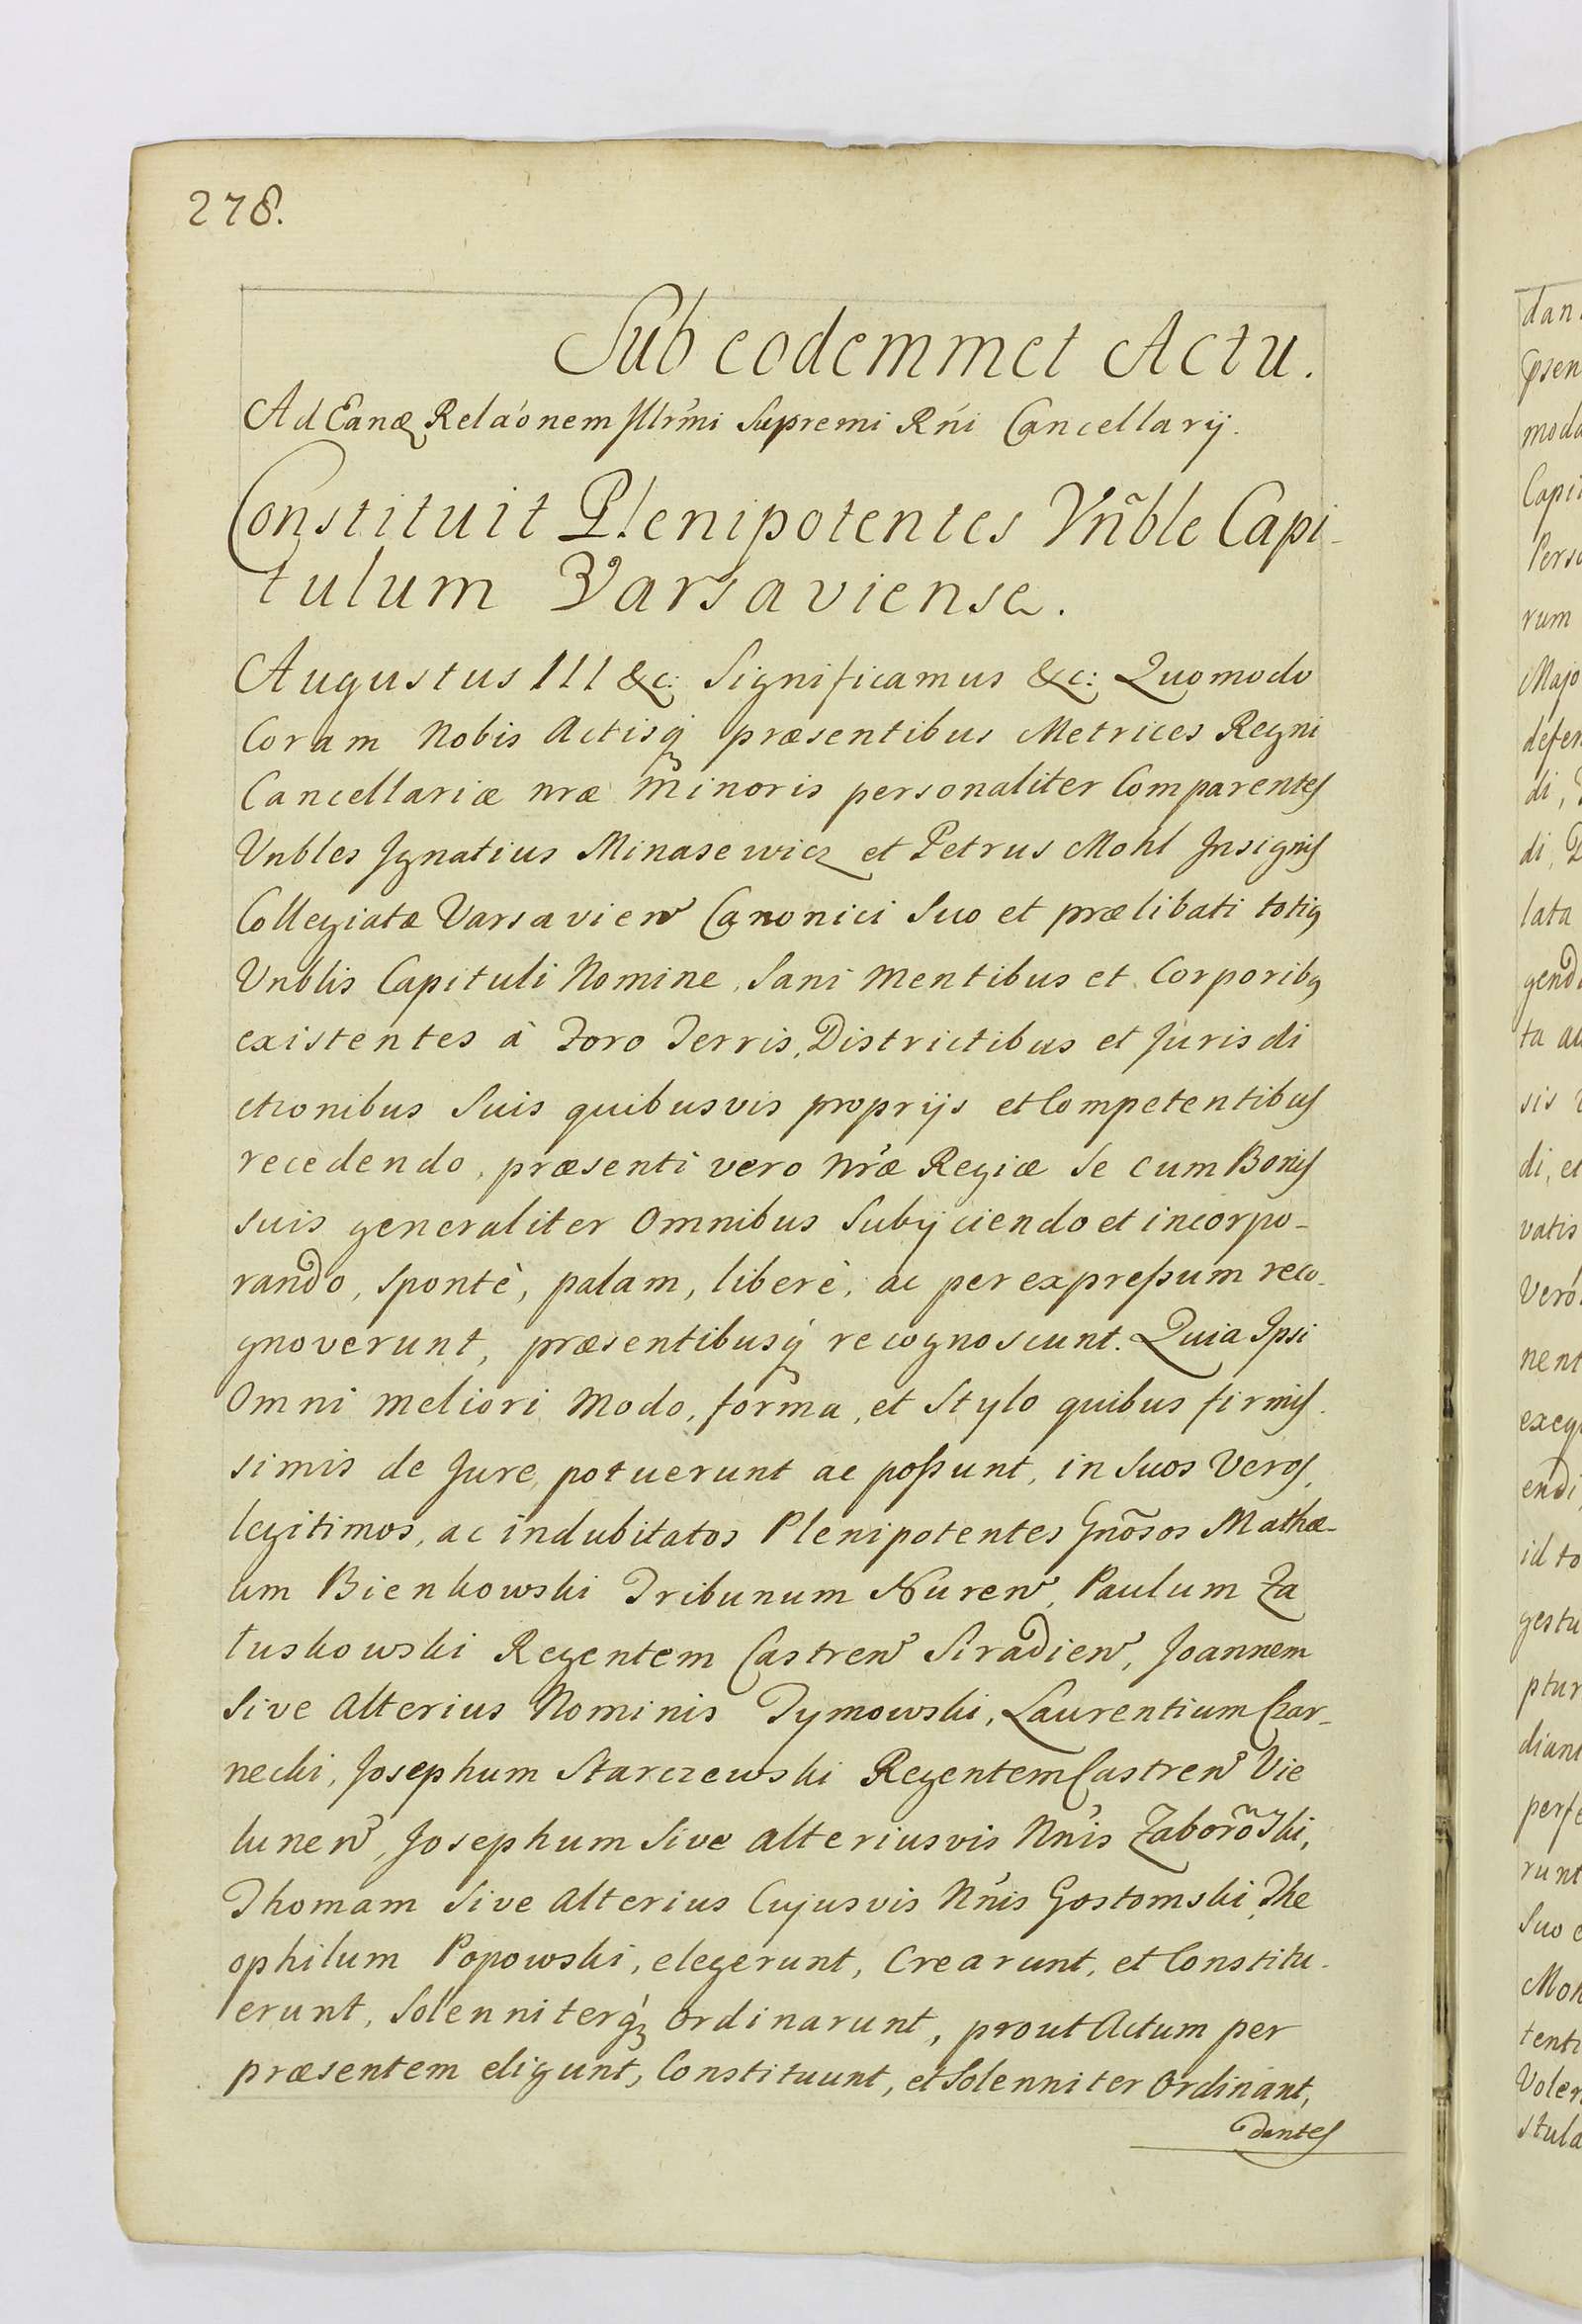 278.
Sub eodemmet Actu.
Ad Eandē Relãonem Illr̃mi Supremi Rñi Cancellarij.
Constituit Plenipotentes Vñble Capi-
tulum Varsaviense.
Augustus III &c: Significamus &c: Quomodo
Coram Nobis Actisq́ præsentibus Metrices Regni
Cancellariæ nræ Minoris personaliter Comparentes
Vnbles Ignatius Minasewicz et Petrus Mohl Insignis
Collegiatæ Varsavien Canonici Suo et prælibati totiꝯ
Vnblis Capituli Nomine, Sani Mentibus et Corporibꝯ
existentes à Foro Terris, Districtibus et Jurisdi
ctionibus Suis quibusvis proprijs et Competentibus
recedendo, præsenti vero Nr̃æ Regiæ Se cum Bonis
suis generaliter Omnibus Subijciendo et incorpo-
rando, Spontè, palam, liberè, ac per expreßum reco-
gnoverunt, præsentibusq́ recognoscunt. Quia Ipsi
Omni meliori Modo, forma, et Stylo quibus firmis-
simis de Jure, potuerunt ac poßunt, in Suos Veros,
legitimos, ac indubitatos Plenipotentes Gnõsos Mathæ-
um Bienkowski Tribunum Nuren, Paulum Za
łuskowski Regentem Castren Siradien, Joannem
Sive Alterius Nominis Tymowski, Laurentium Czar-
necki, Josephum Starczewski Regentem Castren Vie
lunen, Josephum Sive alteriusvis Nñis Zaborõski,
Thomam Sive Alterius Cujusvis Nñis Gostomski, The
ophilum Popowski, elegerunt, Crearunt, et Constitu-
erunt, Solenniterq́ꝫ Ordinarunt, prout Actum per
præsentem eligunt, Constituunt, et Solenniter Ordinant,
dantes